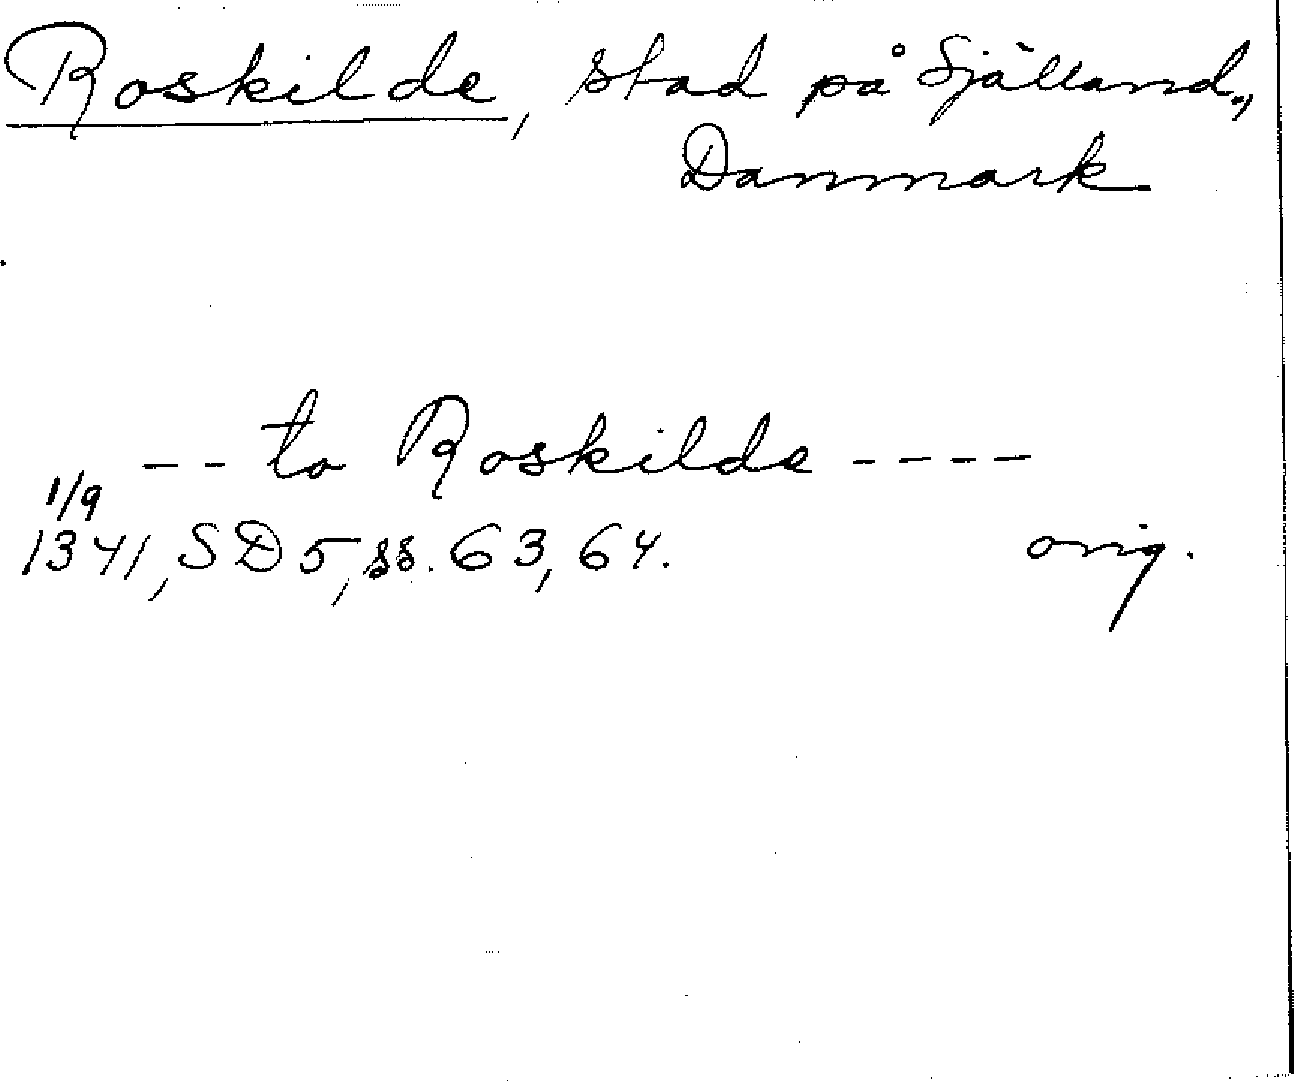 Roskilde, stad på Själland,
Danmark
-- to Roskilde ----
1/9
1341, SD 5, ss. 63, 64. orig.